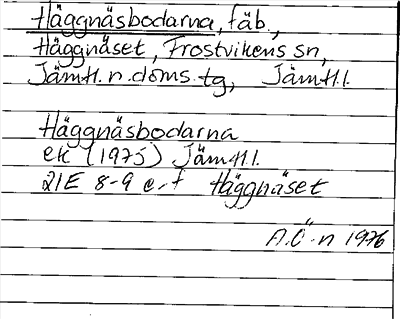 Häggnäsbodarna, fäb.,
Häggnäset, Frostvikens sn,
Jämtl. n. doms. tg, Jämtl. l.
Häggnäsbodarna
ek (1975) Jämtl. l.
21E 8-9 e, f Häggnäset
A.Ö-n 1976